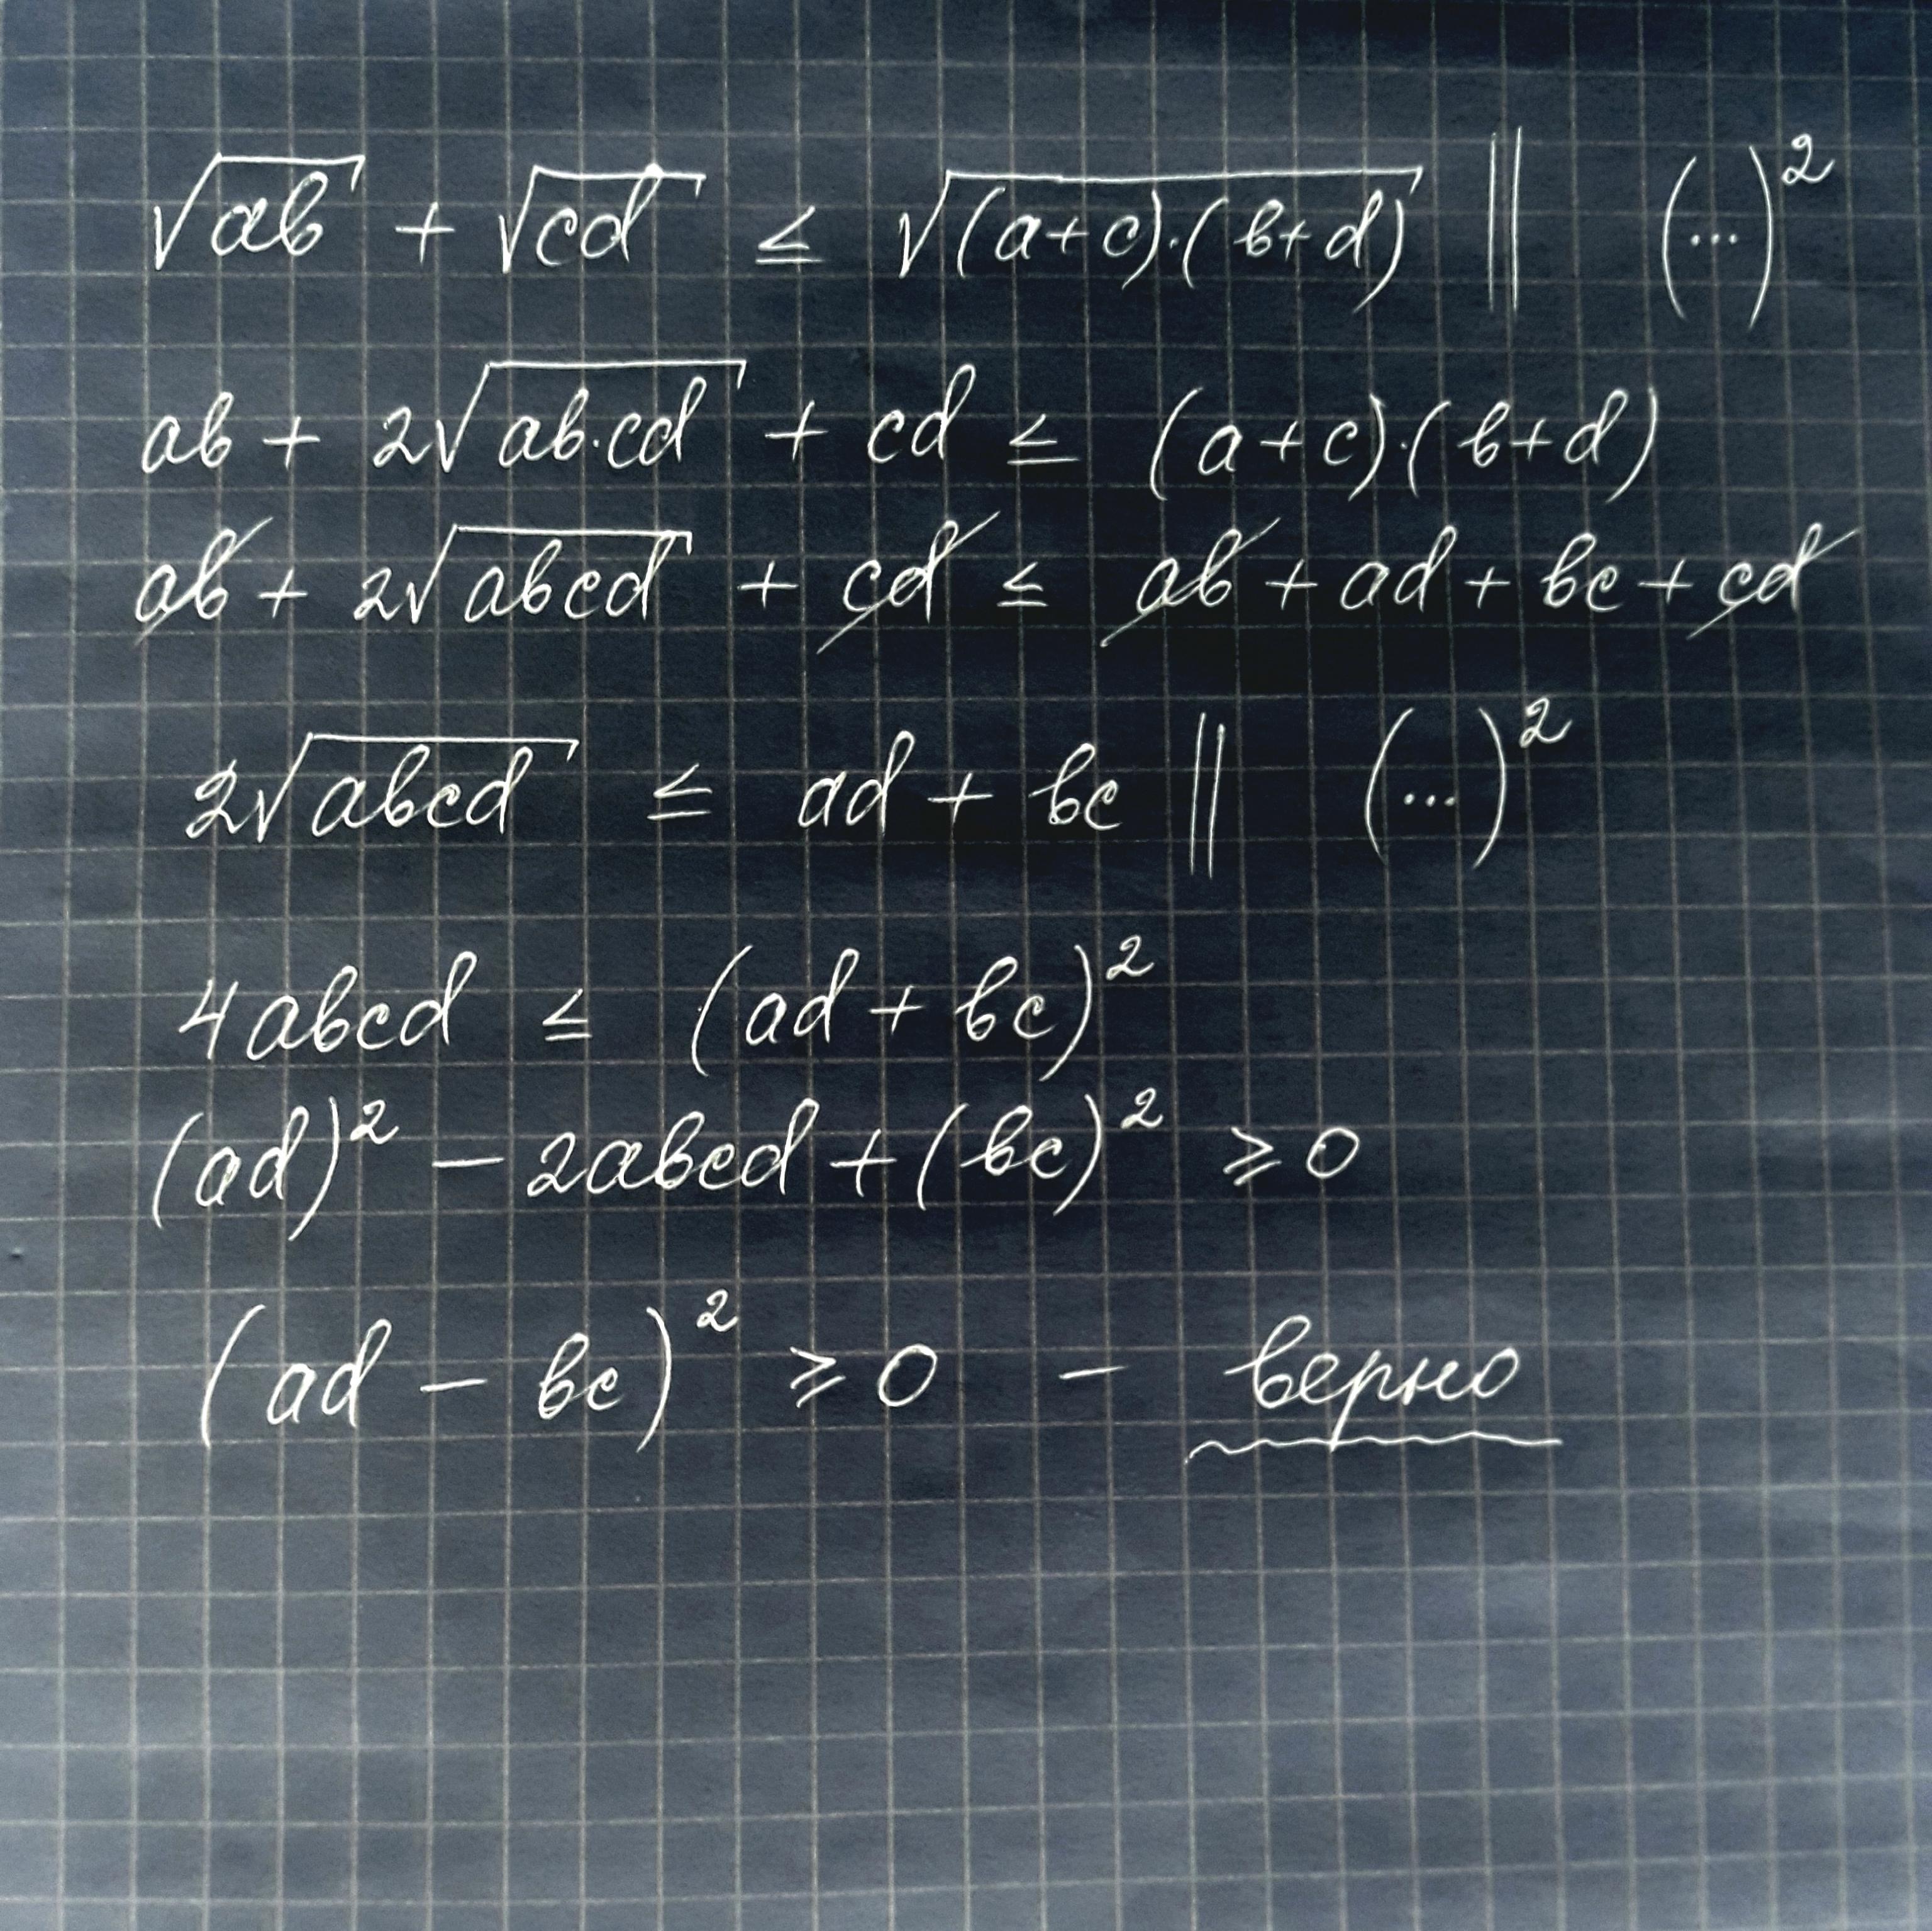 √ab + √cd ≤ √(a+c)·(b+d) || (...)²
ab + 2√ab·cd + cd ≤ (a+c)·(b+d)
ab + 2√abcd + cd ≤ ab + ad + bc + cd
2√abcd ≤ ad + bc || (...)²
4abcd ≤ (ad + bc)²
(ad)² - 2abcd + (bc)² ≥ 0
(ad - bc)² ≥ 0 - верно